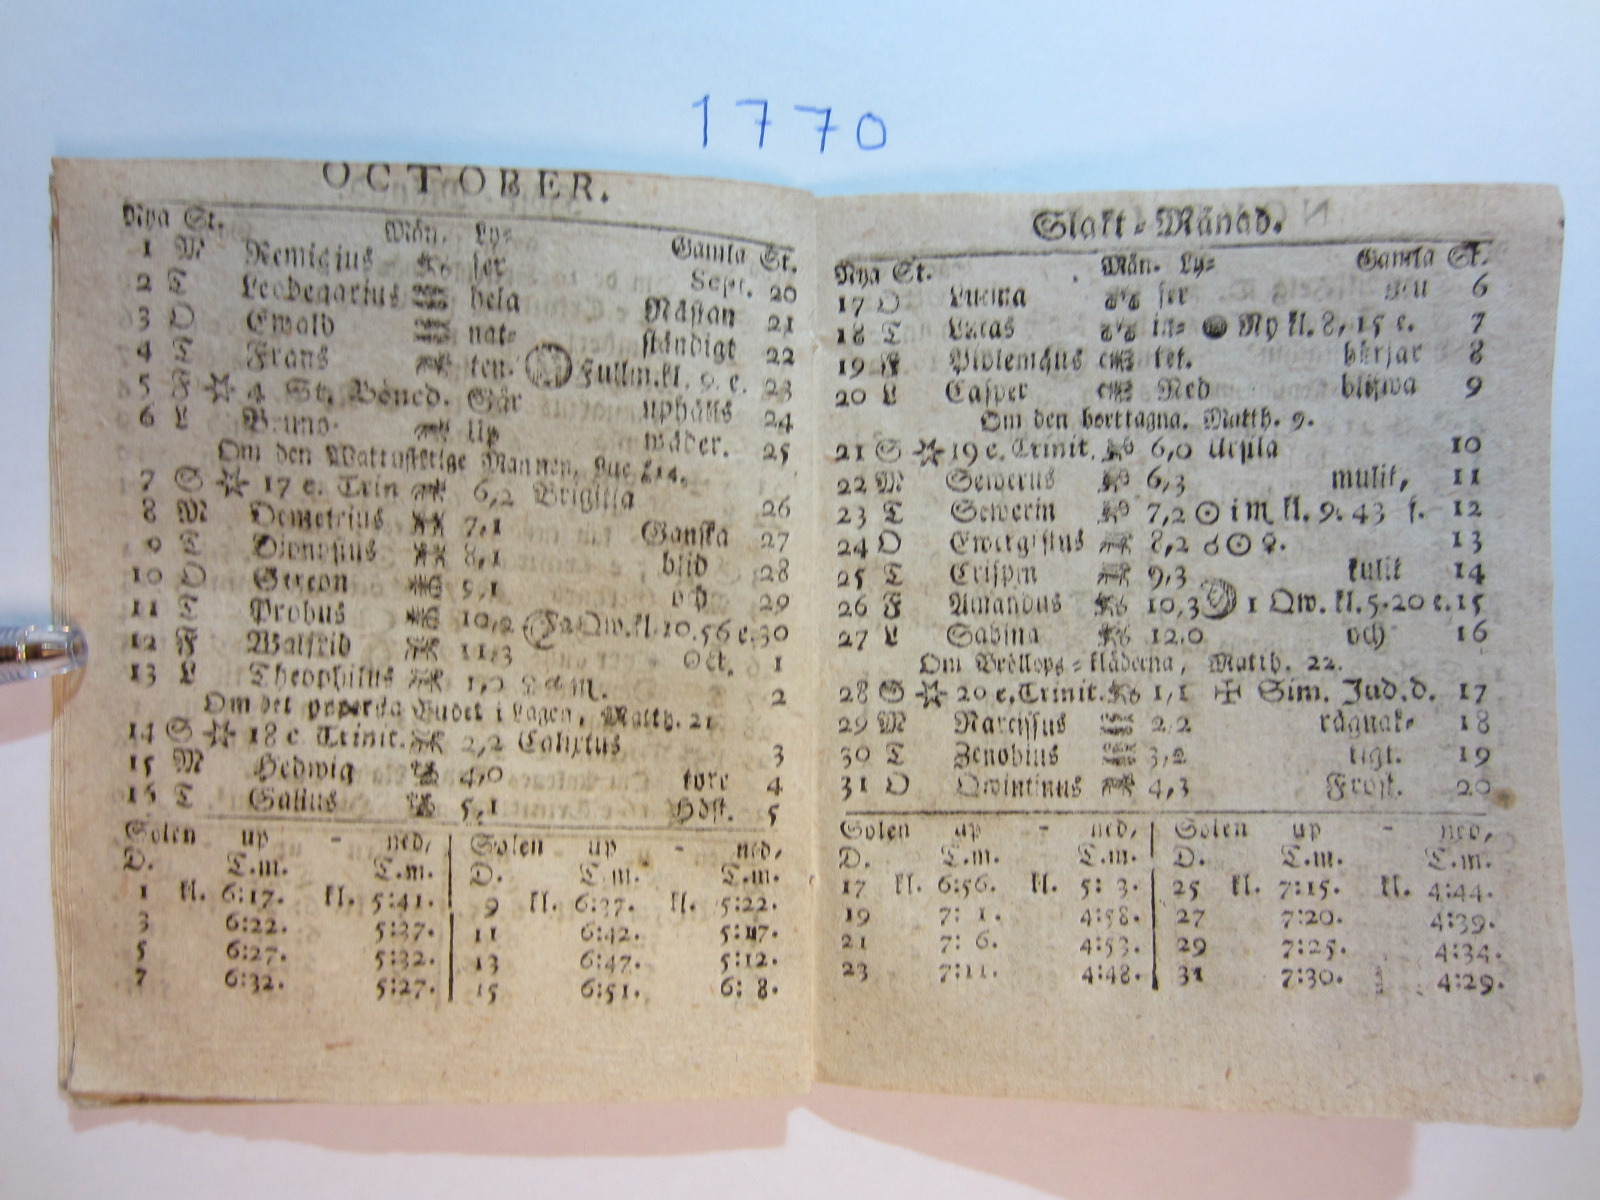 1770
OCTOBER.
Nya St. Mån. Ly= Gamla St.
1 M Remigius ser Sept. 20
2 T Leodegarius hela Nästan 21
3 O Ewald nat= ständigt 22
4 T Frans ten. Fullm. kl. 9. e. 23
5 F 4 St. Böned. Går uphålls 24
6 L Bruno Up wäder. 25
Om den Wattusigtige Mannen, Luc. 14.
7 S 17 e. Trin 6,2 Brigitta 26
8 M Demetrius 7,1 Ganska 27
9 T Dionysius 8,1 blid 28
10 O Gereon 9,1 och 29
11 T Probus 10,2 Qw. kl. 10. 56 e. 30
12 F Walfrid 11,3 Oct. 1
13 L Theophilus 2
Om det yppersta Budet i Lagen, Matth. 22
14 S 18 e. Trinit. 2,2 Calixtus 3
15 M Hedwig 4,0 torr 4
16 T Gallus 5,1 Höst. 5
Solen up - ned, Solen up - ned,
D. T.m. T.m. D. T.m. T.m.
1 kl. 6:17. kl. 5:41. 9 kl. 6:37. kl. 5:22.
3 6:22. 5:37. 11 6:42. 5:17.
5 6:27. 5:32. 13 6:47. 5:12.
7 6:32. 5:27. 15 6:51. 6: 8.
Slakt=Månad.
Nya St. Mån. Ly= Gamla St.
17 O Lucina ser 6
18 T Lucas in= Ny kl. 8, 15 e. 7
19 F Ptolemäus tet. börjar 8
20 L Casper Med blifwa 9
Om den borttagna. Matth. 9.
21 S 19 e. Trinit. 6,0 Ursula 10
22 M Sewerus 6,3 mulit, 11
23 T Sewerin 7,2 ☉ i ♏ kl. 9. 43 f. 12
24 O Ewergistus 8,2 ☌ ☉ ♀. 13
25 T Crispin 9,3 kulit 14
26 F Amandus 10,3 1 Qw. kl. 5. 20 e. 15
27 L Sabina 12.0 och 16
Om Bröllops=kläderna, Matth. 22.
28 S 20 e. Trinit. 1,1 ✠ Sim. Jud. d. 17
29 M Narcissus 2,2 rägnak= 18
30 T Zenobius 3,2 tigt. 19
31 O Qwintinus 4,3 Frost. 20
Solen up - ned, Solen up - ned,
D. T.m. T.m. D. T.m. T.m.
17 kl. 6:56. kl. 5: 3. 25 kl. 7:15. kl. 4:44.
19 7: 1. 4:58. 27 7:20. 4:39.
21 7: 6. 4:53. 29 7:25. 4:34.
23 7:11. 4:48. 31 7:30. 4:29.